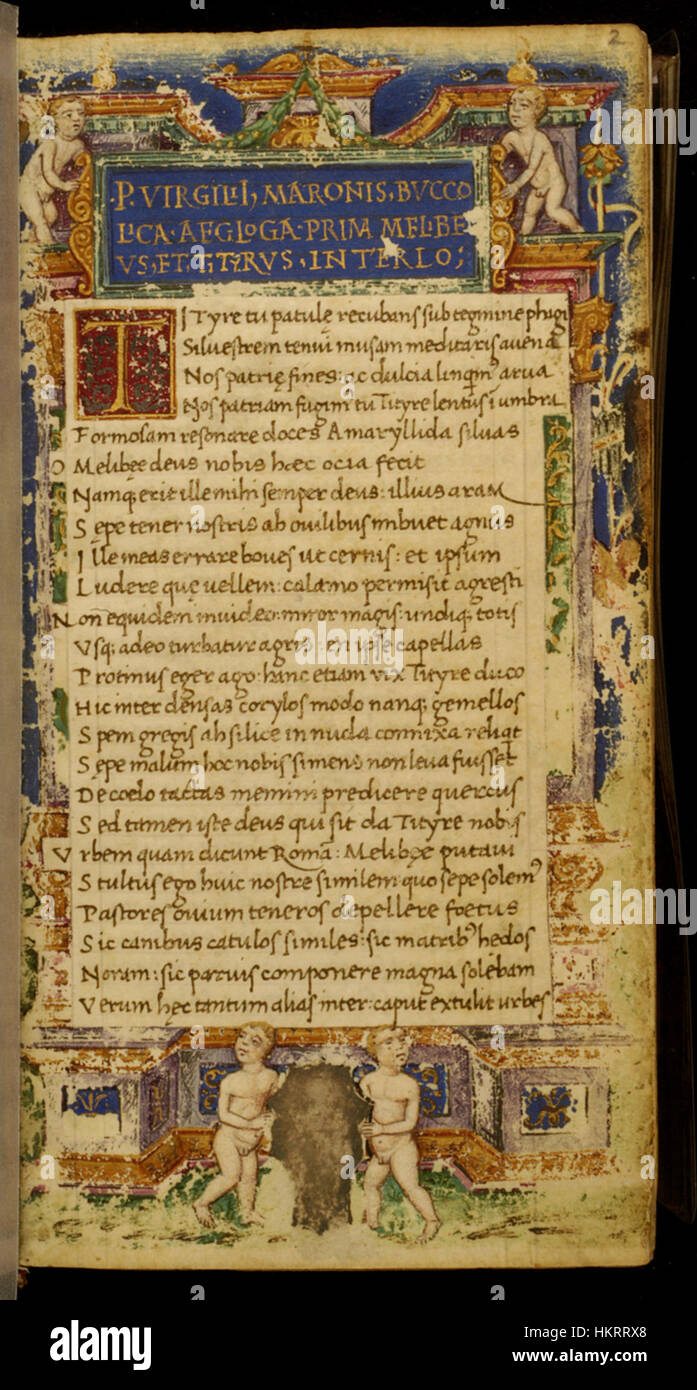 2
·P· VIRGILII, MARONIS, BVCCO
LICA · AEGLOGA · PRIMA MELIBE
VS, ET, TITYRVS, INTERLO;
TITyre tu patulę recubans sub tegmine phagi
Siluestrem tenui musam meditaris auena
Nos patrię fines: ac dulcia linqm̃ arua
Nos patriam fugim tu Tityre lentus ĩ umbra
Formosam resonare doces Amaryllida siluas
O Melibęe deus nobis hæc ocia fecit
Namq; erit ille mihi semper deus: illius aram
Sepe tener nostris ab ouilibus imbuet agnus
Ille meas errare boues ut cernis: et ipsum
Ludere quę uellem: calamo permisit agresti
Non equidem inuideo: miror magis: undiq; totis
Vsq; adeo turbatur agris: en ipse capellas
Protinus eger ago: hanc etiam uix Tityre duco
Hic inter densas corylos modo nanq; gemellos
Spem gregis ah silice in nuda connixa reliqt
Sępe malum hoc nobis si mens non leua fuisset
De coelo tactas memini predicere quercus
Sed tamen iste deus qui sit da Tityre nobis
Vrbem quam dicunt Romã: Melibęe putaui
Stultus ego huic nostre similem: quo sepe solem᾽
Pastores ouium teneros depellere foetus
Sic canibus catulos similes: sic matrib᾽ hedos
Noram: sic paruis componere magna solebam
Verum hęc tantum alias inter: caput extulit urbes
alamy
Image ID: HKRRX8
www.alamy.com